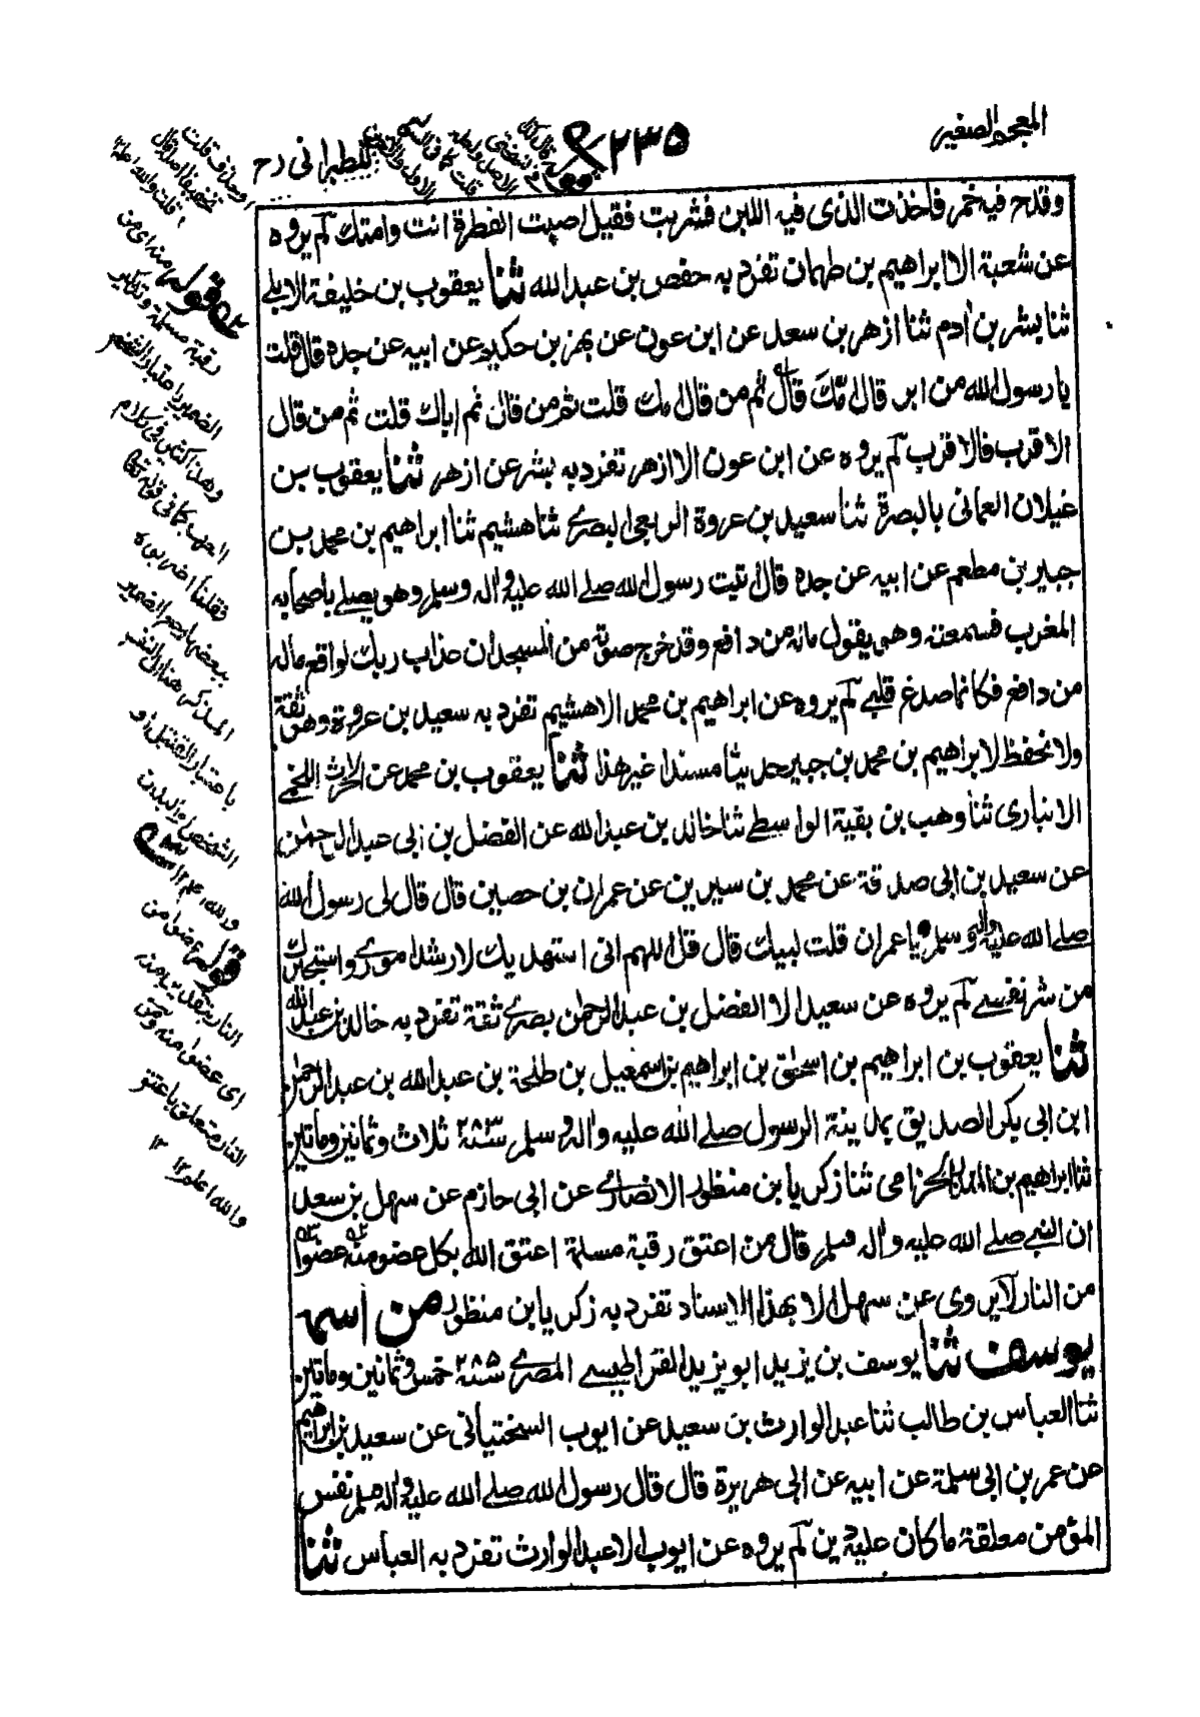 المعجم الصغير
٢٣٥
للطبرانی رح
وقدح فیه خمر فاخذت الذی فیه اللبن فشربت فقیل اصبت الفطرة انت وامتك لم یروه
عن شعبة الا ابراهیم بن طهمان تفرد به حفص بن عبد الله ثنا یعقوب بن خلیفة الابلے
ثنا بشر بن اٰدم ثنا ازهر بن سعد عن ابن عون عن بهز بن حکیم عن ابیه عن جده قال قلت
یا رسول الله من ابر قال امّكَ قال ثم من قال امك قلت ثم من قال ثم اباك قلت ثم من قال
الاقرب فالاقرب لم یروه عن ابن عون الا ازهر تفرد به بشر عن ازهر ثنا یعقوب بن
غیلان العمانی بالبصرة ثنا سعید بن عروة الربعی البصرے ثنا هشیم ثنا ابراهیم بن محمد بن
جبیر بن مطعم عن ابیه عن جده قال اتیت رسول الله صلے الله علیه واٰله وسلم وهو یصلے باصحابه
المغرب فسمعته وهو یقول ماله من دافع وقد خرج صوته من المسجد ان عذاب ربك لواقع ماله
من دافع فکانما صدع قلبے لم یروه عن ابراهیم بن محمد الا هشیم تفرد به سعید بن عروة وهو ثقة
ولا نحفظ لابراهیم بن محمد بن جبیر حدیثا مسندا غیر هذا ثنا یعقوب بن محمد عن الحارث اللخمے
الانباری ثنا وهب بن بقیة الواسطے ثنا خالد بن عبد الله عن الفضل بن ابی عبد الرحمٰن
عن سعید بن ابی صدقة عن محمد بن سیرین عن عمران بن حصین قال قال لی رسول الله
صلے الله علیه واٰله وسلم یا عمران قلت لبیك قال قل اللهم انی استهدیك لارشد امورے واستجیرك
من شر نفسے لم یروه عن سعید الا الفضل بن عبد الرحمٰن بصرے ثقة تفرد به خالد بن عبد الله
ثنا یعقوب بن ابراهیم بن اسحٰق بن ابراهیم بن اسمٰعیل بن طلحة بن عبد الله بن عبد الرحمٰن
ابن ابی بکر الصدیق بمدینة الرسول صلے الله علیه واٰله وسلم ٢٨٣ سنة ثلاث وثمانین ومأتین
ثنا ابراهیم بن المنذر الحزامی ثنا زکریا بن منظور الانصارے عن ابی حازم عن سهل بن سعد
ان النبے صلے الله علیه واٰله وسلم قال من اعتق رقبة مسلمة اعتق الله بکل عضو منه عضوا
من النار لا یروی عن سهل الا بهذا الاسناد تفرد به زکریا بن منظور من اسمه
یوسف ثنا یوسف بن یزید ابو یزید القراطیسے المصرے ٢٨٥ سنة خمس وثمانین ومأتین
ثنا العباس بن طالب ثنا عبد الوارث بن سعید عن ایوب السختیانی عن سعید بن ابراهیم
عن عمر بن ابی سلمة عن ابیه عن ابی هریرة قال قال رسول الله صلے الله علیه واٰله وسلم نفس
المؤمن معلقة ما کان علیه دین لم یروه عن ایوب الا عبد الوارث تفرد به العباس ثنا
قوله منه ای من
رقبة مسلمة وتذکیر
الضمیر باعتبار الشخص
وهذا کثیر فی کلام
العرب کما فی قوله تعالی
فقلنا اضربوه
ببعضها رجع الضمیر
المذکر هنا الی النفس
باعتبار القتیل او
الشخص او البدن
والله اعلم ١٢
قوله عضوا من
النار بتقدیر منه
ای عضوا منه ومن
النار متعلق باعتق
والله اعلم ١٢